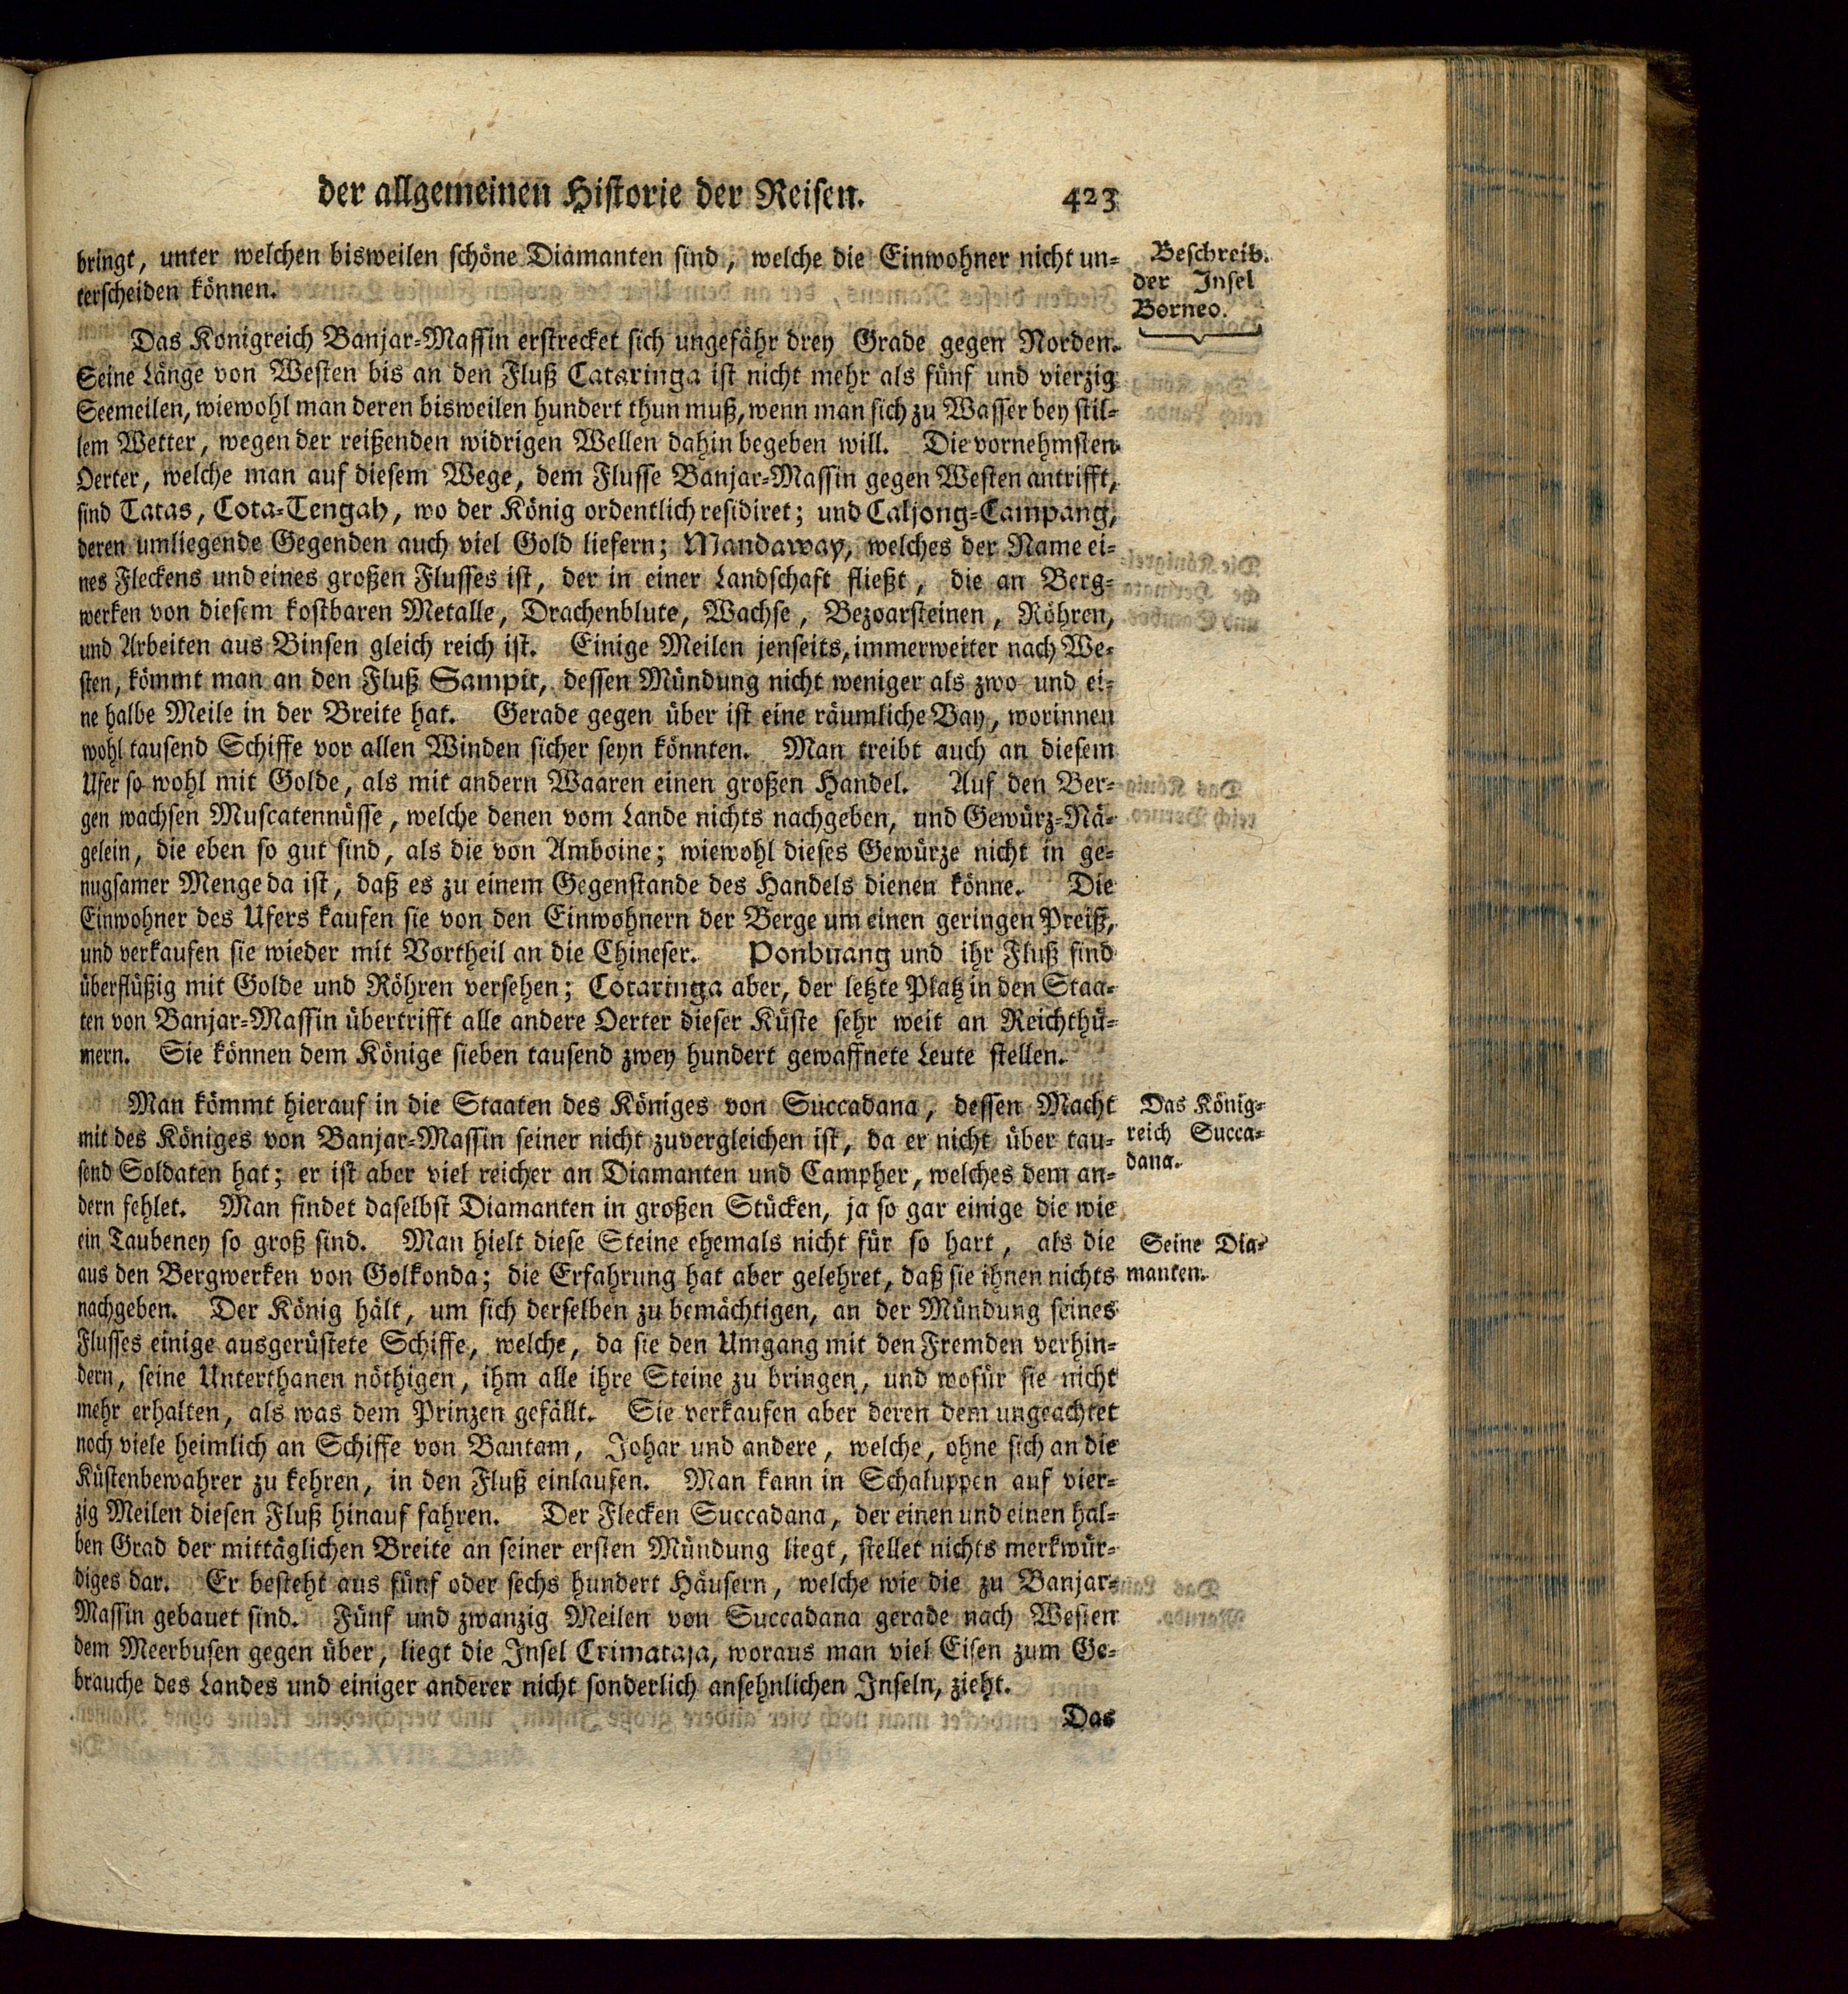 der allgemeinen Historie der Reisen. 423
bringt, unter welchen bisweilen schöne Diamanten sind, welche die Einwohner nicht un-
terscheiden können.
Beschreib.
der Insel
Borneo.
Das Königreich Banjar-Massin erstrecket sich ungefähr drey Grade gegen Norden.
Seine Länge von Westen bis an den Fluß Cataringa ist nicht mehr als fünf und vierzig
Seemeilen, wiewohl man deren bisweilen hundert thun muß, wenn man sich zu Wasser bey stil-
lem Wetter, wegen der reißenden widrigen Wellen dahin begeben will. Die vornehmsten
Oerter, welche man auf diesem Wege, dem Flusse Banjar-Massin gegen Westen antrifft,
sind Tatas, Cota-Tengah, wo der König ordentlich residiret; und Caljong-Campang,
deren umliegende Gegenden auch viel Gold liefern; Mandaway, welches der Name ei-
nes Fleckens und eines großen Flusses ist, der in einer Landschaft fließt, die an Berg-
werken von diesem kostbaren Metalle, Drachenblute, Wachse, Bezoarsteinen, Röhren,
und Arbeiten aus Binsen gleich reich ist. Einige Meilen jenseits, immerweiter nach We-
sten, kömmt man an den Fluß Sampit, dessen Mündung nicht weniger als zwo und ei-
ne halbe Meile in der Breite hat. Gerade gegen über ist eine räumliche Bay, worinnen
wohl tausend Schiffe vor allen Winden sicher seyn könnten. Man treibt auch an diesem
Ufer so wohl mit Golde, als mit andern Waaren einen großen Handel. Auf den Ber-
gen wachsen Muscatennüsse, welche denen vom Lande nichts nachgeben, und Gewürz-Nä-
gelein, die eben so gut sind, als die von Amboine; wiewohl dieses Gewürze nicht in ge-
nugsamer Menge da ist, daß es zu einem Gegenstande des Handels dienen könne. Die
Einwohner des Ufers kaufen sie von den Einwohnern der Berge um einen geringen Preiß,
und verkaufen sie wieder mit Vortheil an die Chineser. Ponbuang und ihr Fluß sind
überflüßig mit Golde und Röhren versehen; Cotaringa aber, der letzte Platz in den Staa-
ten von Banjar-Massin übertrifft alle andere Oerter dieser Küste sehr weit an Reichthü-
mern. Sie können dem Könige sieben tausend zwey hundert gewaffnete Leute stellen.
Man kömmt hierauf in die Staaten des Königes von Succadana, dessen Macht
mit des Königes von Banjar-Massin seiner nicht zuvergleichen ist, da er nicht über tau-
send Soldaten hat; er ist aber viel reicher an Diamanten und Campher, welches dem an-
dern fehlet. Man findet daselbst Diamanten in großen Stücken, ja so gar einige die wie
Das König-
reich Succa-
dana.
ein Taubeney so groß sind. Man hielt diese Steine ehemals nicht für so hart, als die
aus den Bergwerken von Golkonda; die Erfahrung hat aber gelehret, daß sie ihnen nichts
Seine Dia-
manten.
nachgeben. Der König hält, um sich derselben zu bemächtigen, an der Mündung seines
Flusses einige ausgerüstete Schiffe, welche, da sie den Umgang mit den Fremden verhin-
dern, seine Unterthanen nöthigen, ihm alle ihre Steine zu bringen, und wofür sie nicht
mehr erhalten, als was dem Prinzen gefällt. Sie verkaufen aber deren dem ungeachtet
noch viele heimlich an Schiffe von Bantam, Johar und andere, welche, ohne sich an die
Küstenbewahrer zu kehren, in den Fluß einlaufen. Man kann in Schaluppen auf vier-
zig Meilen diesen Fluß hinauf fahren. Der Flecken Succadana, der einen und einen hal-
ben Grad der mittäglichen Breite an seiner ersten Mündung liegt, stellet nichts merkwür-
diges dar. Er besteht aus fünf oder sechs hundert Häusern, welche wie die zu Banjar-
Massin gebauet sind. Fünf und zwanzig Meilen von Succadana gerade nach Westen
dem Meerbusen gegen über, liegt die Insel Crimataja, woraus man viel Eisen zum Ge-
brauche des Landes und einiger anderer nicht sonderlich ansehnlichen Inseln, zieht.
Das